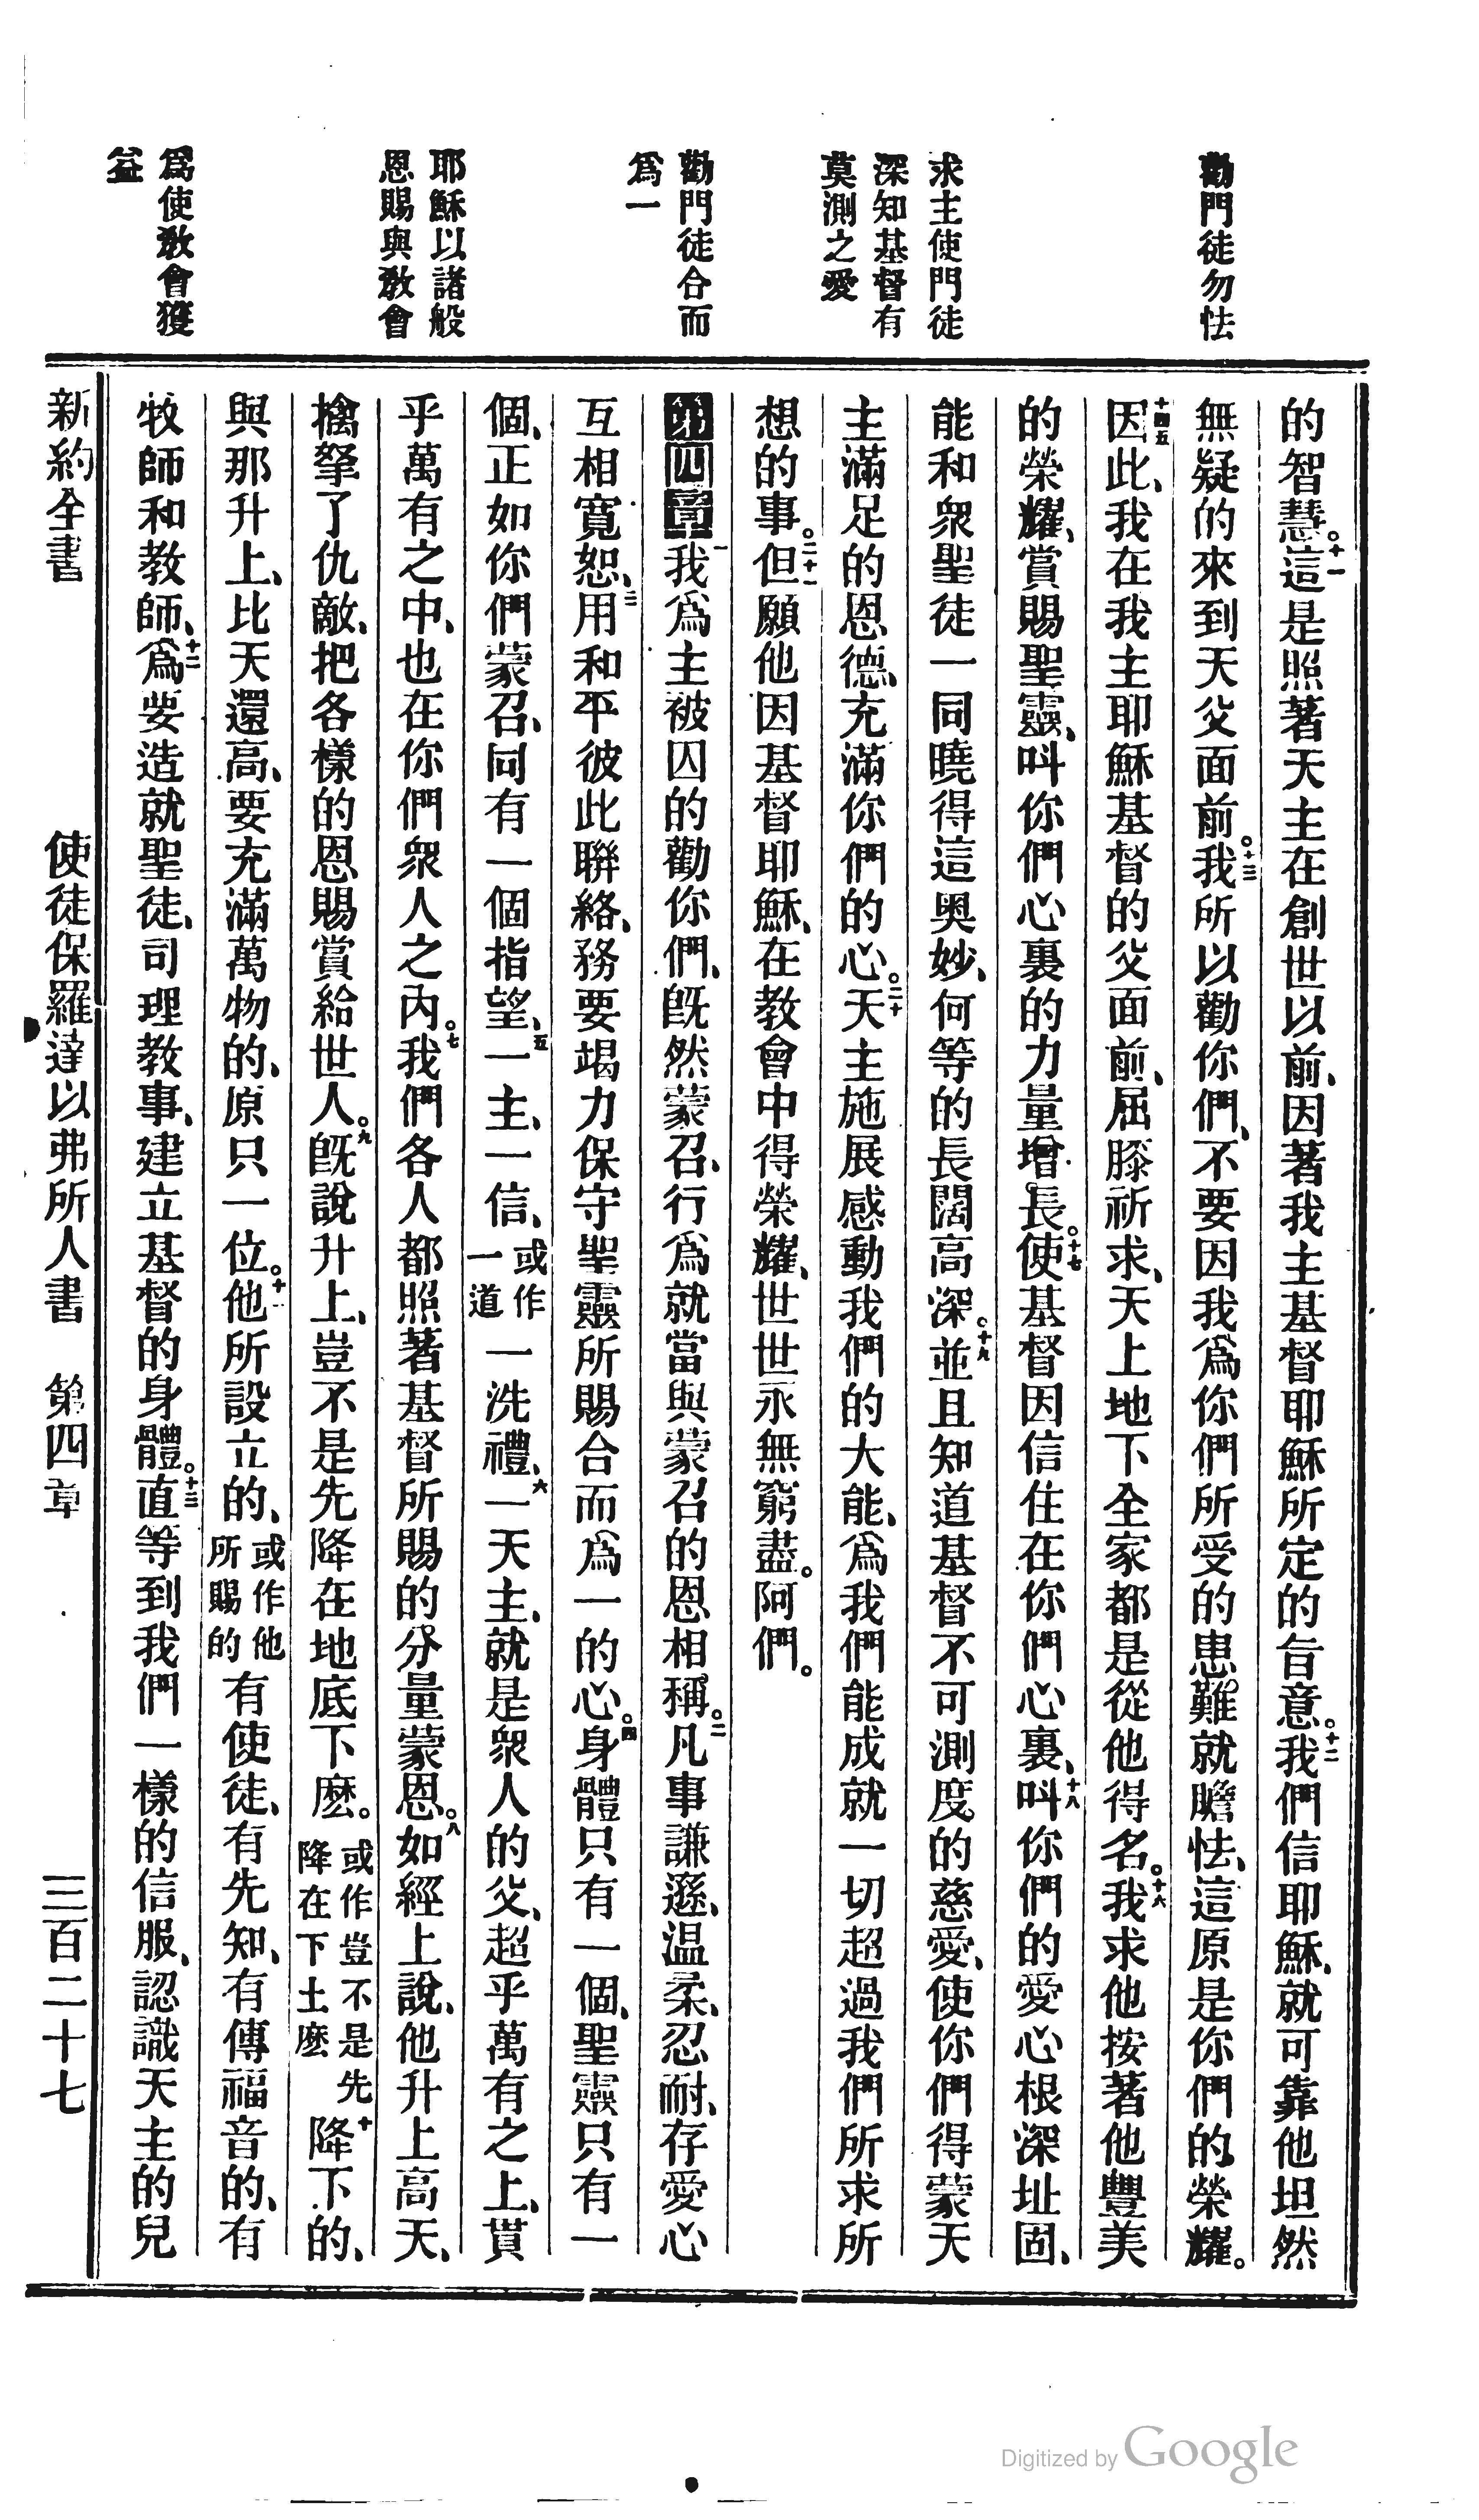 勸門徒勿怯
求主使門徒
深知基督有
莫測之愛
勸門徒合而
爲一
耶穌以諸般
恩賜與教會
爲使教會獲
益
的智慧。十一這是照著天主在創世以前、因著我主基督耶穌所定的旨意。十二我們信耶穌、就可靠他坦然
無疑的來到天父面前。十三我所以勸你們、不要因我爲你們所受的患難就膽怯、這原是你們的榮耀。
十四五因此、我在我主耶穌基督的父面前、屈膝祈求、天上地下全家都是從他得名。十六我求他按著他豐美
的榮耀、賞賜聖靈、叫你們心裏的力量增長。十七使基督因信住在你們心裏、十八叫你們的愛心根深址固、
能和衆聖徒一同曉得這奥妙、何等的長闊高深。十九並且知道基督不可測度的慈愛、使你們得蒙天
主滿足的恩德、充滿你們的心。二十天主施展感動我們的大能、爲我們能成就一切超過我們所求所
想的事。二十一但願他因基督耶穌、在教會中得榮耀、世世永無窮盡。阿們。
第四章 一我爲主被囚的勸你們、旣然蒙召、行爲就當與蒙召的恩相稱。二凡事謙遜、温柔、忍耐、存愛心
互相寬恕、三用和平彼此聯絡、務要竭力保守聖靈所賜合而爲一的心。四身體只有一個、聖靈只有一
個、正如你們蒙召、同有一個指望、五一主、一信、或作一道一洗禮、六一天主、就是衆人的父、超乎萬有之上、貫
乎萬有之中、也在你們衆人之內。七我們各人都照著基督所賜的分量蒙恩。八如經上說、他升上高天、
擒拏了仇敵、把各樣的恩賜賞給世人。九旣說升上、豈不是先降在地底下麽。或作豈不是先降在下土麽十降下的、
與那升上、比天還高、要充滿萬物的、原只一位。十一他所設立的、或作他所賜的有使徒、有先知、有傳福音的、有
牧師和教師、十二爲要造就聖徒、司理教事、建立基督的身體。十三直等到我們一樣的信服、認識天主的兒
新約全書 使徒保羅達以弗所人書 第四章 三百二十七
Digitized by Google